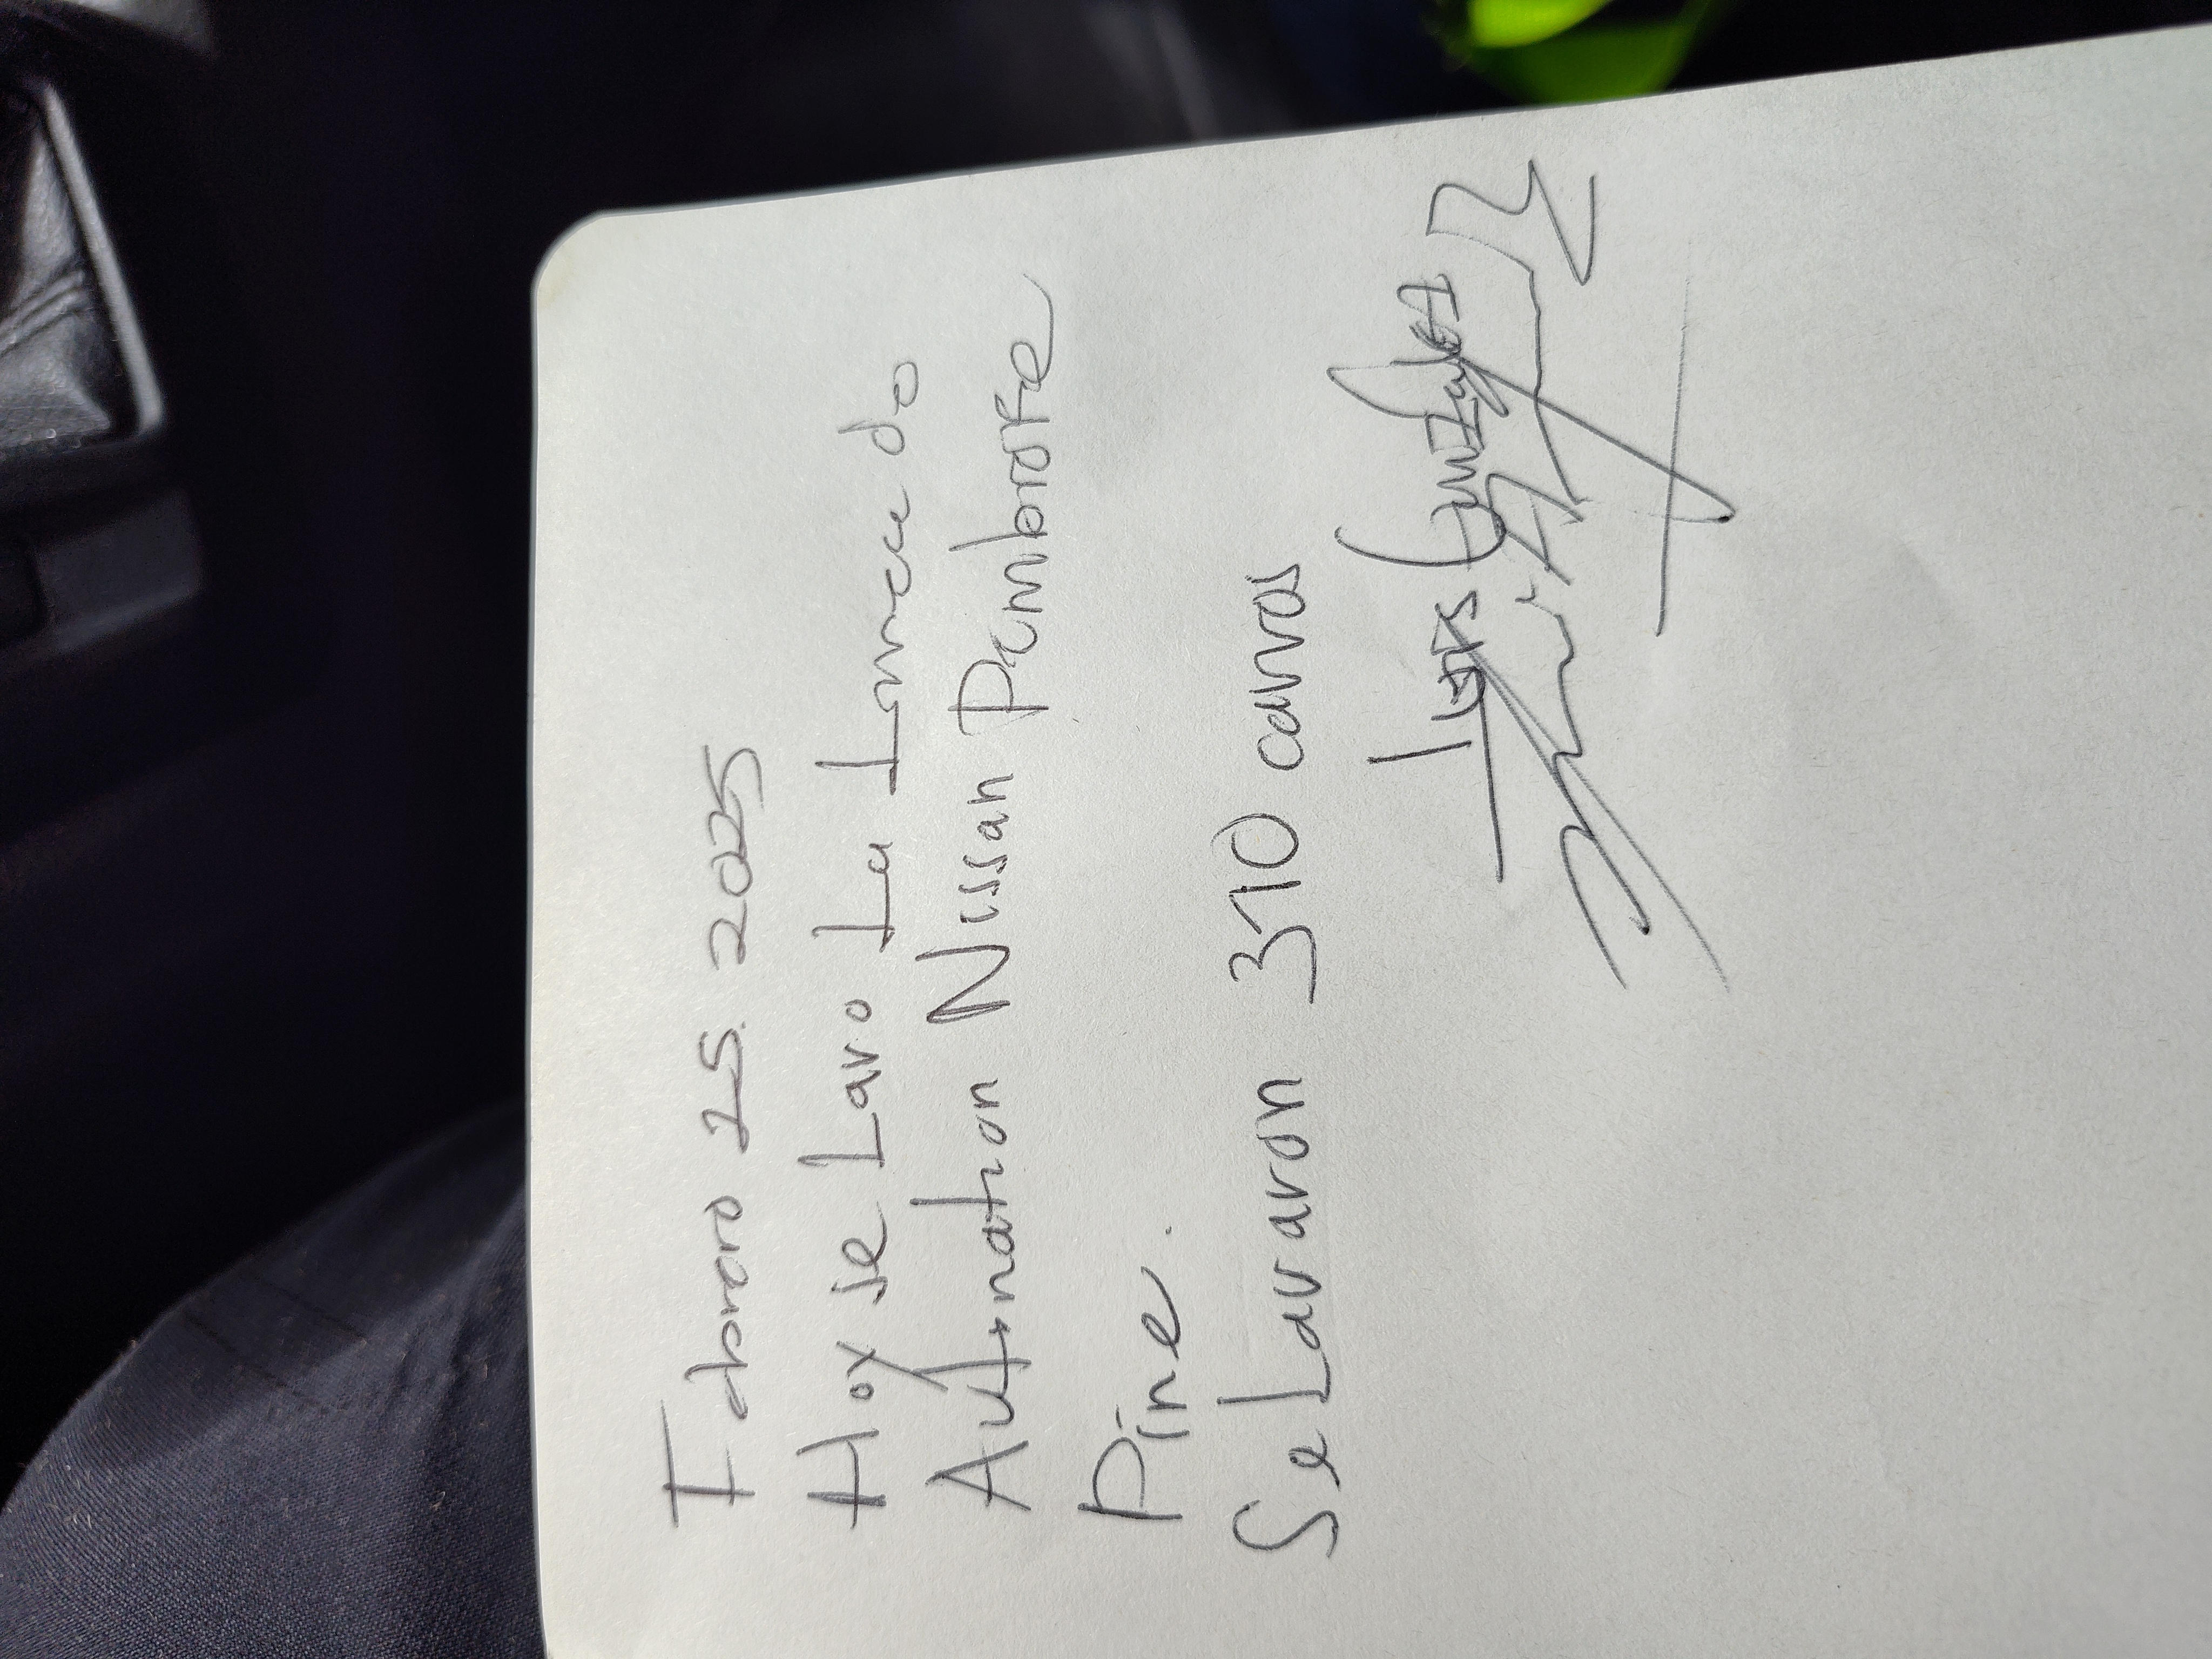 Febrero 25. 2025
Hoy se Lavo La Linea de
Automation Nissan Pembroke
Pine.
Se Lavaron 310 carros
Luis Gonzalez